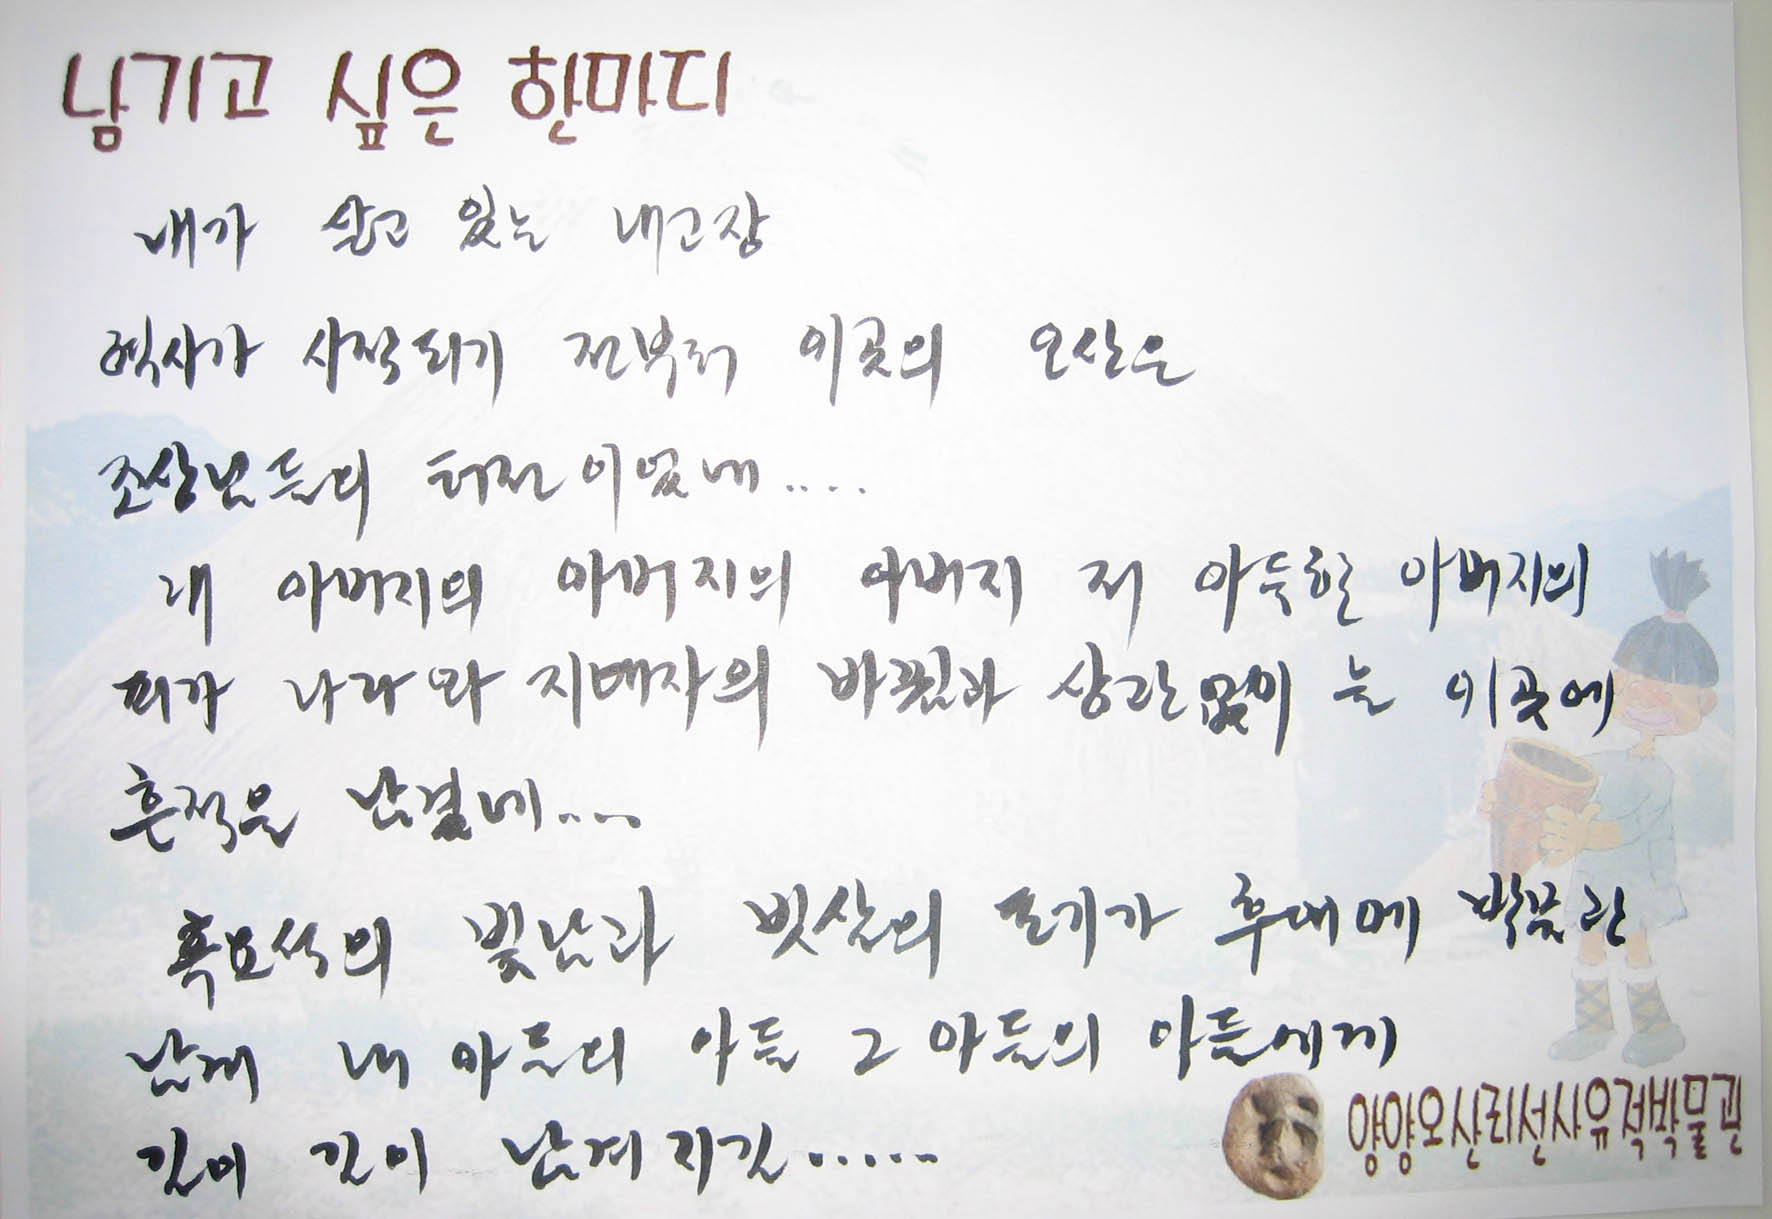 남기고 싶은 한마디
내가 살고 있는 내고장
역사가 시작되기 전부터 이곳의 오산은
조상님들의 터전이었네....
내 아버지의 아버지의 아버지 저 아득한 아버지의
피가 나라와 지배자의 바뀜과 상관없이 늘 이곳에
흔적을 남겼네....
흑요석의 빛남과 빗살의 토기가 후대에 박물관
남게 내 아들의 아들 그 아들의 아들에게
길이 길이 남겨지길......
양양오산리선사유적박물관